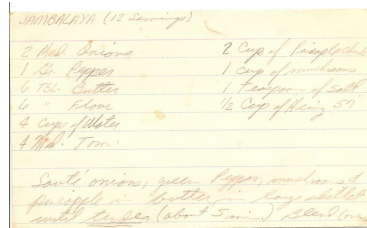 JAMBALAYA (12 Servings)
2 Med. Onions
1 Gr. Pepper
6 TBL. Butter
6 " Flour
4 Cups of Water
4 Med. Tom.
2 Cup of Pineapple
1 cup of mushrooms
1 Teaspoon of Salt
1/2 Cup of Heinz 57
Sauté onions, green Pepper, mushrooms &
pineapple in butter in large skillet
until tender (about 5 min) Blend